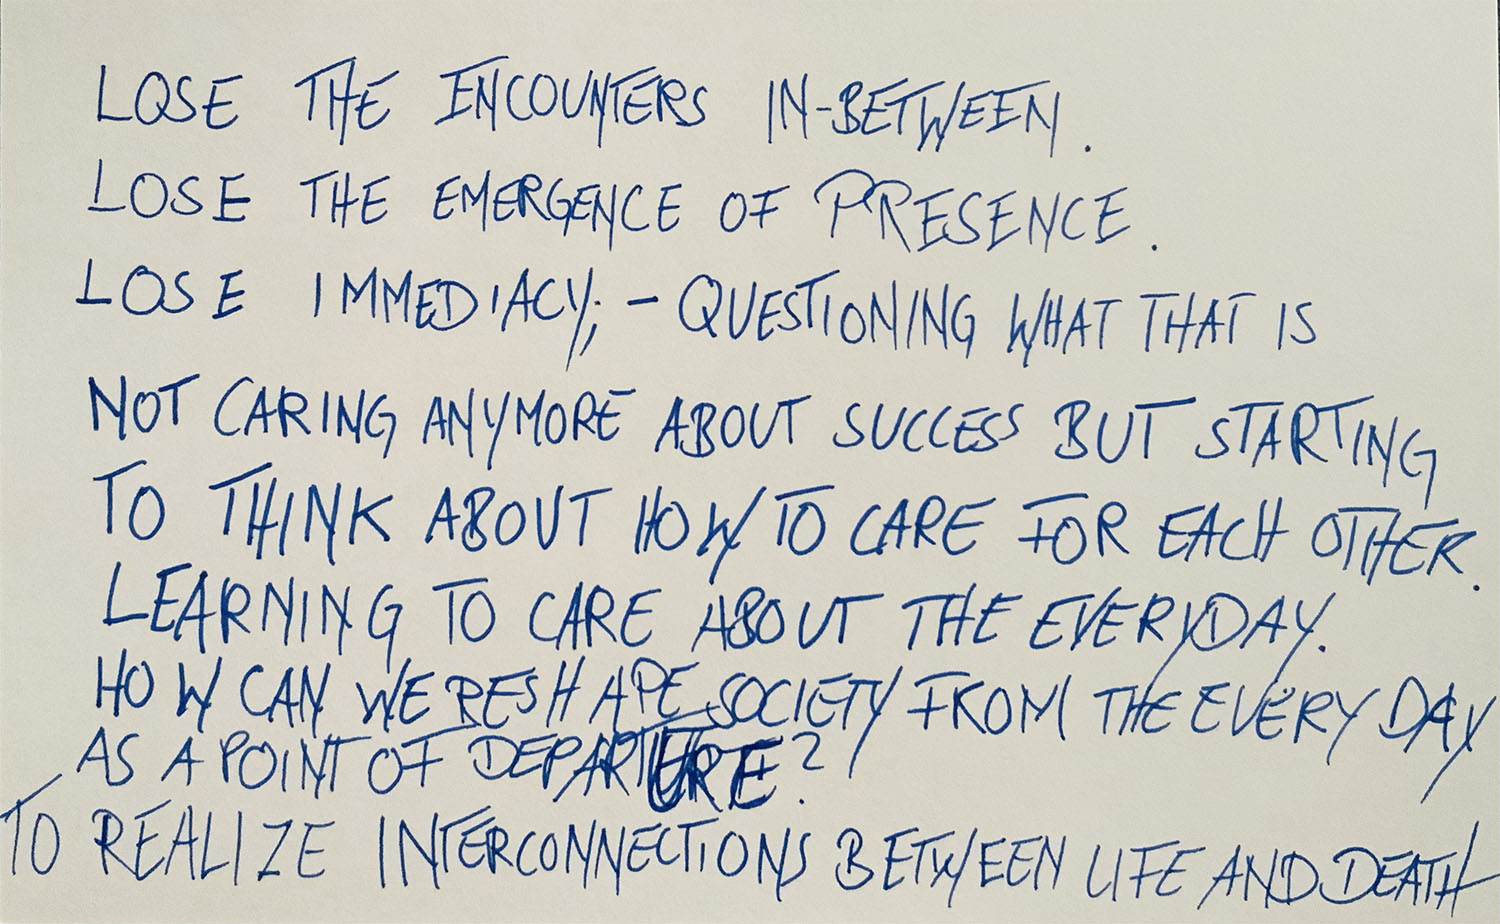 LOSE THE ENCOUNTERS IN-BETWEEN.
LOSE THE EMERGENCE OF PRESENCE.
LOSE IMMEDIACY; – QUESTIONING WHAT THAT IS
NOT CARING ANYMORE ABOUT SUCCESS BUT STARTING
TO THINK ABOUT HOW TO CARE FOR EACH OTHER.
LEARNING TO CARE ABOUT THE EVERYDAY.
HOW CAN WE RESHAPE SOCIETY FROM THE EVERY DAY
AS A POINT OF DEPARTURE?
TO REALIZE INTERCONNECTIONS BETWEEN LIFE AND DEATH